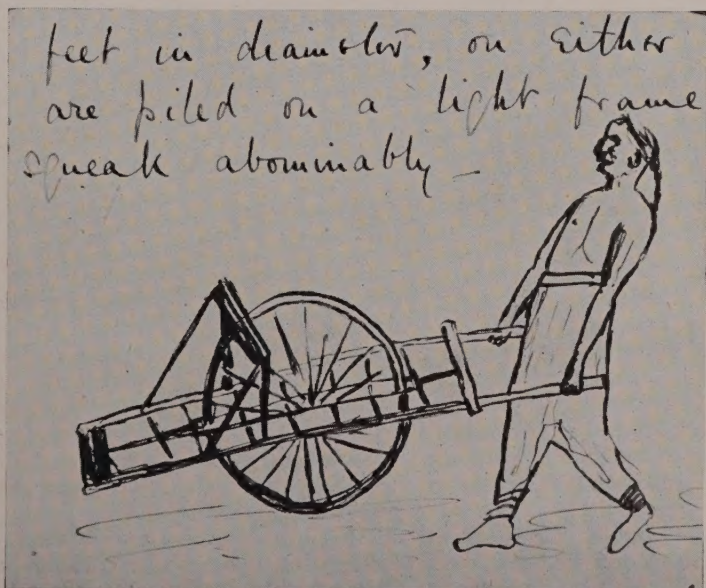 feet in diameter, on either
are piled on a light frame
squeak abominably –